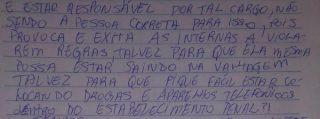 E ESTAR RESPONSÁVEL POR TAL CARGO, NÃO
SENDO A PESSOA CORRETA PARA ISSO, POIS
PROVOCA E EXITA AS INTERNAS A VIOLA-
REM REGRAS, TALVEZ PARA QUE ELA MESMA
POSSA ESTAR SAINDO NA VANTAGEM
TALVEZ PARA QUE FIQUE FÁCIL ESTAR CO-
LOCANDO DROGAS E APARELHOS TELEFÔNICOS
DENTRO DO ESTABELECIMENTO PENAL?!